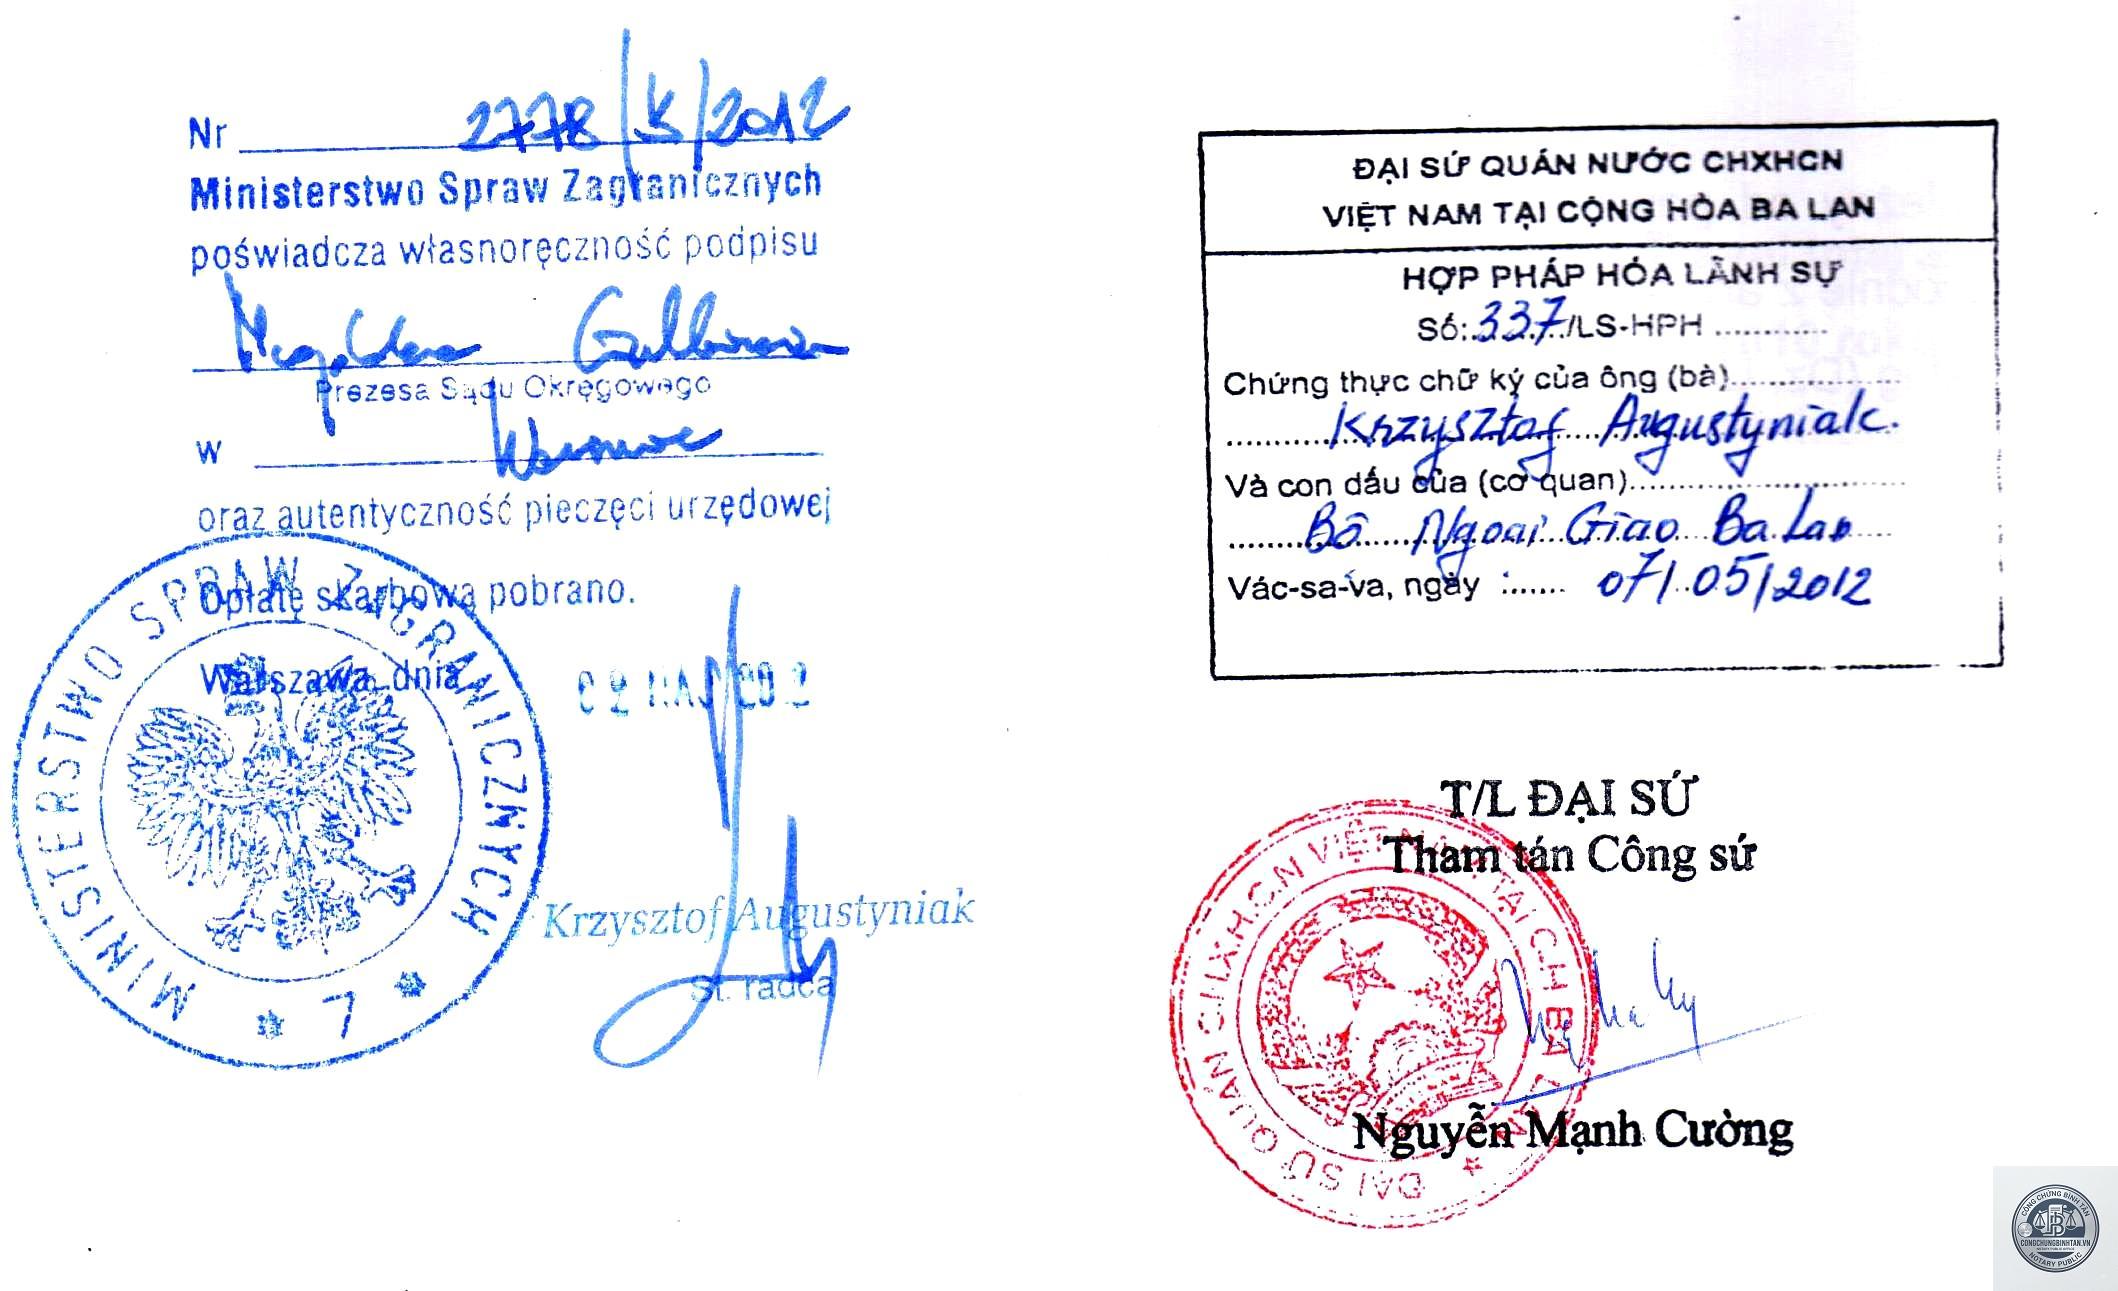 Nr 2778/K/2012
Ministerstwo Spraw Zagranicznych
poświadcza własnoręczność podpisu
Magdalena
Prezesa Sądu Okręgowego
w Warszawie
oraz autentyczność pieczęci urzędowej
Opłatę skarbową pobrano.
Warszawa, dnia 02 MAJ 2012
MINISTERSTWO SPRAW ZAGRANICZNYCH
Krzysztof Augustyniak
St. radca
ĐẠI SỨ QUÁN NƯỚC CHXHCN
VIỆT NAM TẠI CỘNG HÒA BA LAN
HỢP PHÁP HÓA LÃNH SỰ
Số: 337/LS-HPH
Chứng thực chữ ký của ông (bà)
Krzysztof Augustyniak.
Và con dấu của (cơ quan)
Bô Ngoai Giao Ba Lan
Vác-sa-va, ngày : 07/05/2012
T/L ĐẠI SỨ
Tham tán Công sứ
ĐẠI SỨ QUÁN CHXH.C.N VIỆT NAM TẠI CH BA LAN
Nguyễn Mạnh Cường
CÔNG CHỨNG BÌNH TÂN
CONGCHUNGBINHTAN.VN
NOTARY PUBLIC OFFICE
NOTARY PUBLIC